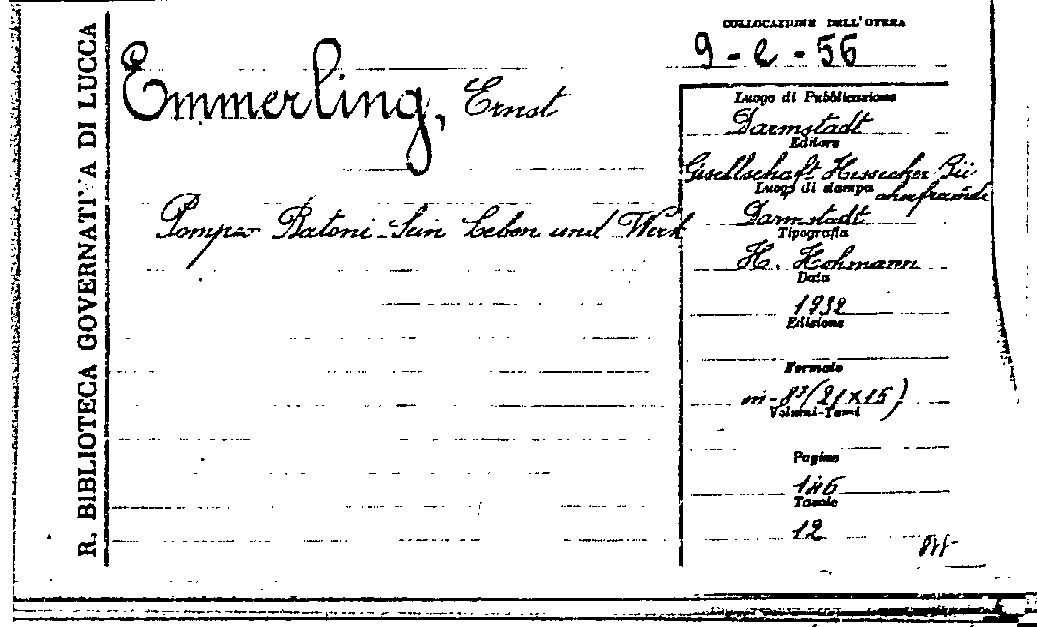 R. BIBLIOTECA GOVERNATIVA DI LUCCA
COLLOCAZIONE DELL'OPERA
9 - e - 56
Emmerling, Ernst
Pompeo Batoni - Sein Leben und Werk
Luogo di Pubblicazione
Darmstadt
Editore
Gesellschaft Hessischer Bü-
cherfreunde
Luogo di stampa
Darmstadt
Tipografia
H. Hohmann
Data
1932
Edizione
Formato
in-8° (21 x 15)
Volumi-Tomi
Pagine
146
Tavole
12